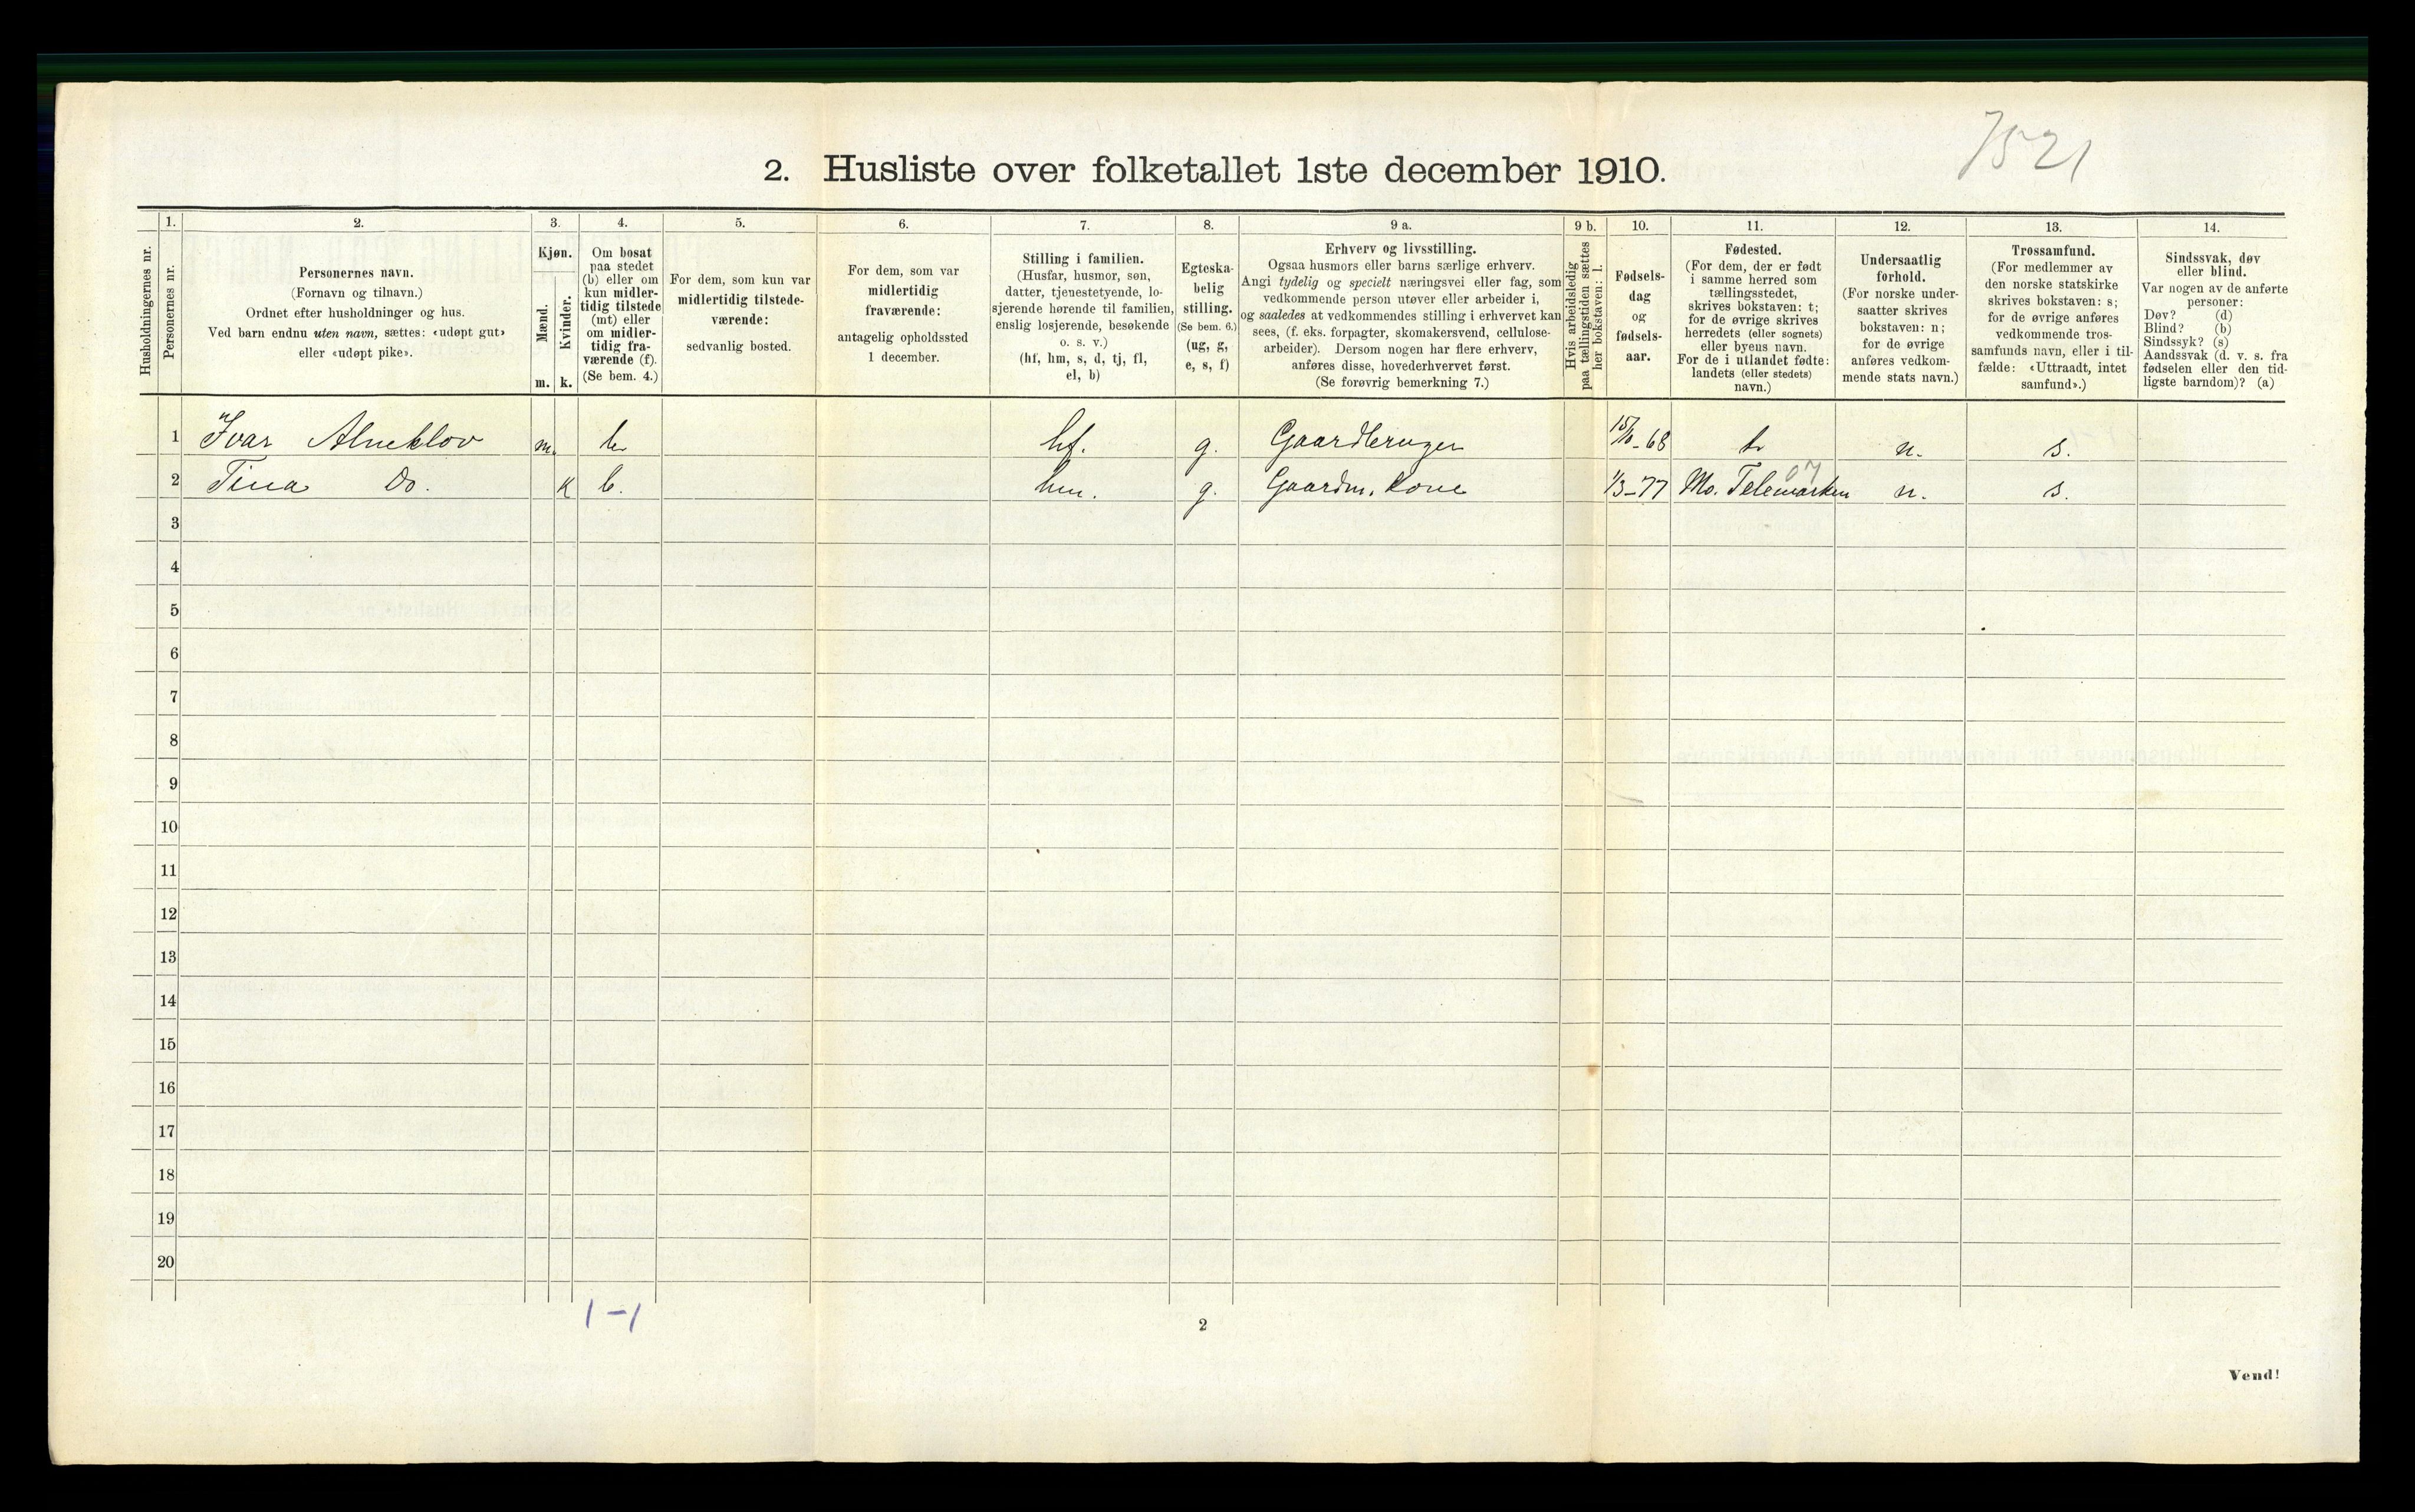 7521
2. Husliste over folketallet 1ste december 1910.
Husholdningernes nr.
1.
Personernes nr.
2.
Personernes navn.
(Fornavn og tilnavn.)
Ordnet efter husholdninger og hus.
Ved barn endnu uten navn, sættes: «udøpt gut»
eller «udøpt pike».
3.
Kjøn.
Mænd.
m.
Kvinder.
k.
4.
Om bosat
paa stedet
(b) eller om
kun midler-
tidig tilstede
(mt) eller
om midler-
tidig fra-
værende (f).
(Se bem. 4.)
5.
For dem, som kun var
midlertidig tilstede-
værende:
sedvanlig bosted.
6.
For dem, som var
midlertidig
fraværende:
antagelig opholdssted
1 december.
7.
Stilling i familien.
(Husfar, husmor, søn,
datter, tjenestetyende, lo-
sjerende hørende til familien,
enslig losjerende, besøkende
o. s. v.)
(hf, hm, s, d, tj, fl,
el, b)
8.
Egteska-
belig
stilling.
(Se bem. 6.)
(ug, g,
e, s, f)
9 a.
Erhverv og livsstilling.
Ogsaa husmors eller barns særlige erhverv.
Angi tydelig og specielt næringsvei eller fag, som
vedkommende person utøver eller arbeider i,
og saaledes at vedkommendes stilling i erhvervet kan
sees, (f. eks. forpagter, skomakersvend, cellulose-
arbeider). Dersom nogen har flere erhverv,
anføres disse, hovederhvervet først.
(Se forøvrig bemerkning 7.)
9 b.
Hvis arbeidsledig
paa tællingstiden sættes
her bokstaven: l.
10.
Fødsels-
dag
og
fødsels-
aar.
11.
Fødested.
(For dem, der er født
i samme herred som
tællingsstedet,
skrives bokstaven: t;
for de øvrige skrives
herredets (eller sognets)
eller byens navn.
For de i utlandet fødte:
landets (eller stedets)
navn.)
12.
Undersaatlig
forhold.
(For norske under-
saatter skrives
bokstaven: n;
for de øvrige
anføres vedkom-
mende stats navn.)
13.
Trossamfund.
(For medlemmer av
den norske statskirke
skrives bokstaven: s;
for de øvrige anføres
vedkommende tros-
samfunds navn, eller i til-
fælde: «Uttraadt, intet
samfund».)
14.
Sindssvak, døv
eller blind.
Var nogen av de anførte
personer:
Døv? (d)
Blind? (b)
Sindssyk? (s)
Aandssvak (d. v. s. fra
fødselen eller den tid-
ligste barndom)? (a)
1 Ivar Alneklov m. b hf. g. Gaardbruger 68 t n. s.
2 Tina Do. k b. hm. g. Gaardm. Kone 1/3-77 Mo. Telemarken 07 n. s.
3
4
5
6
7
8
9
10
11
12
13
14
15
16
17
18
19
20
1-1
2
Vend!